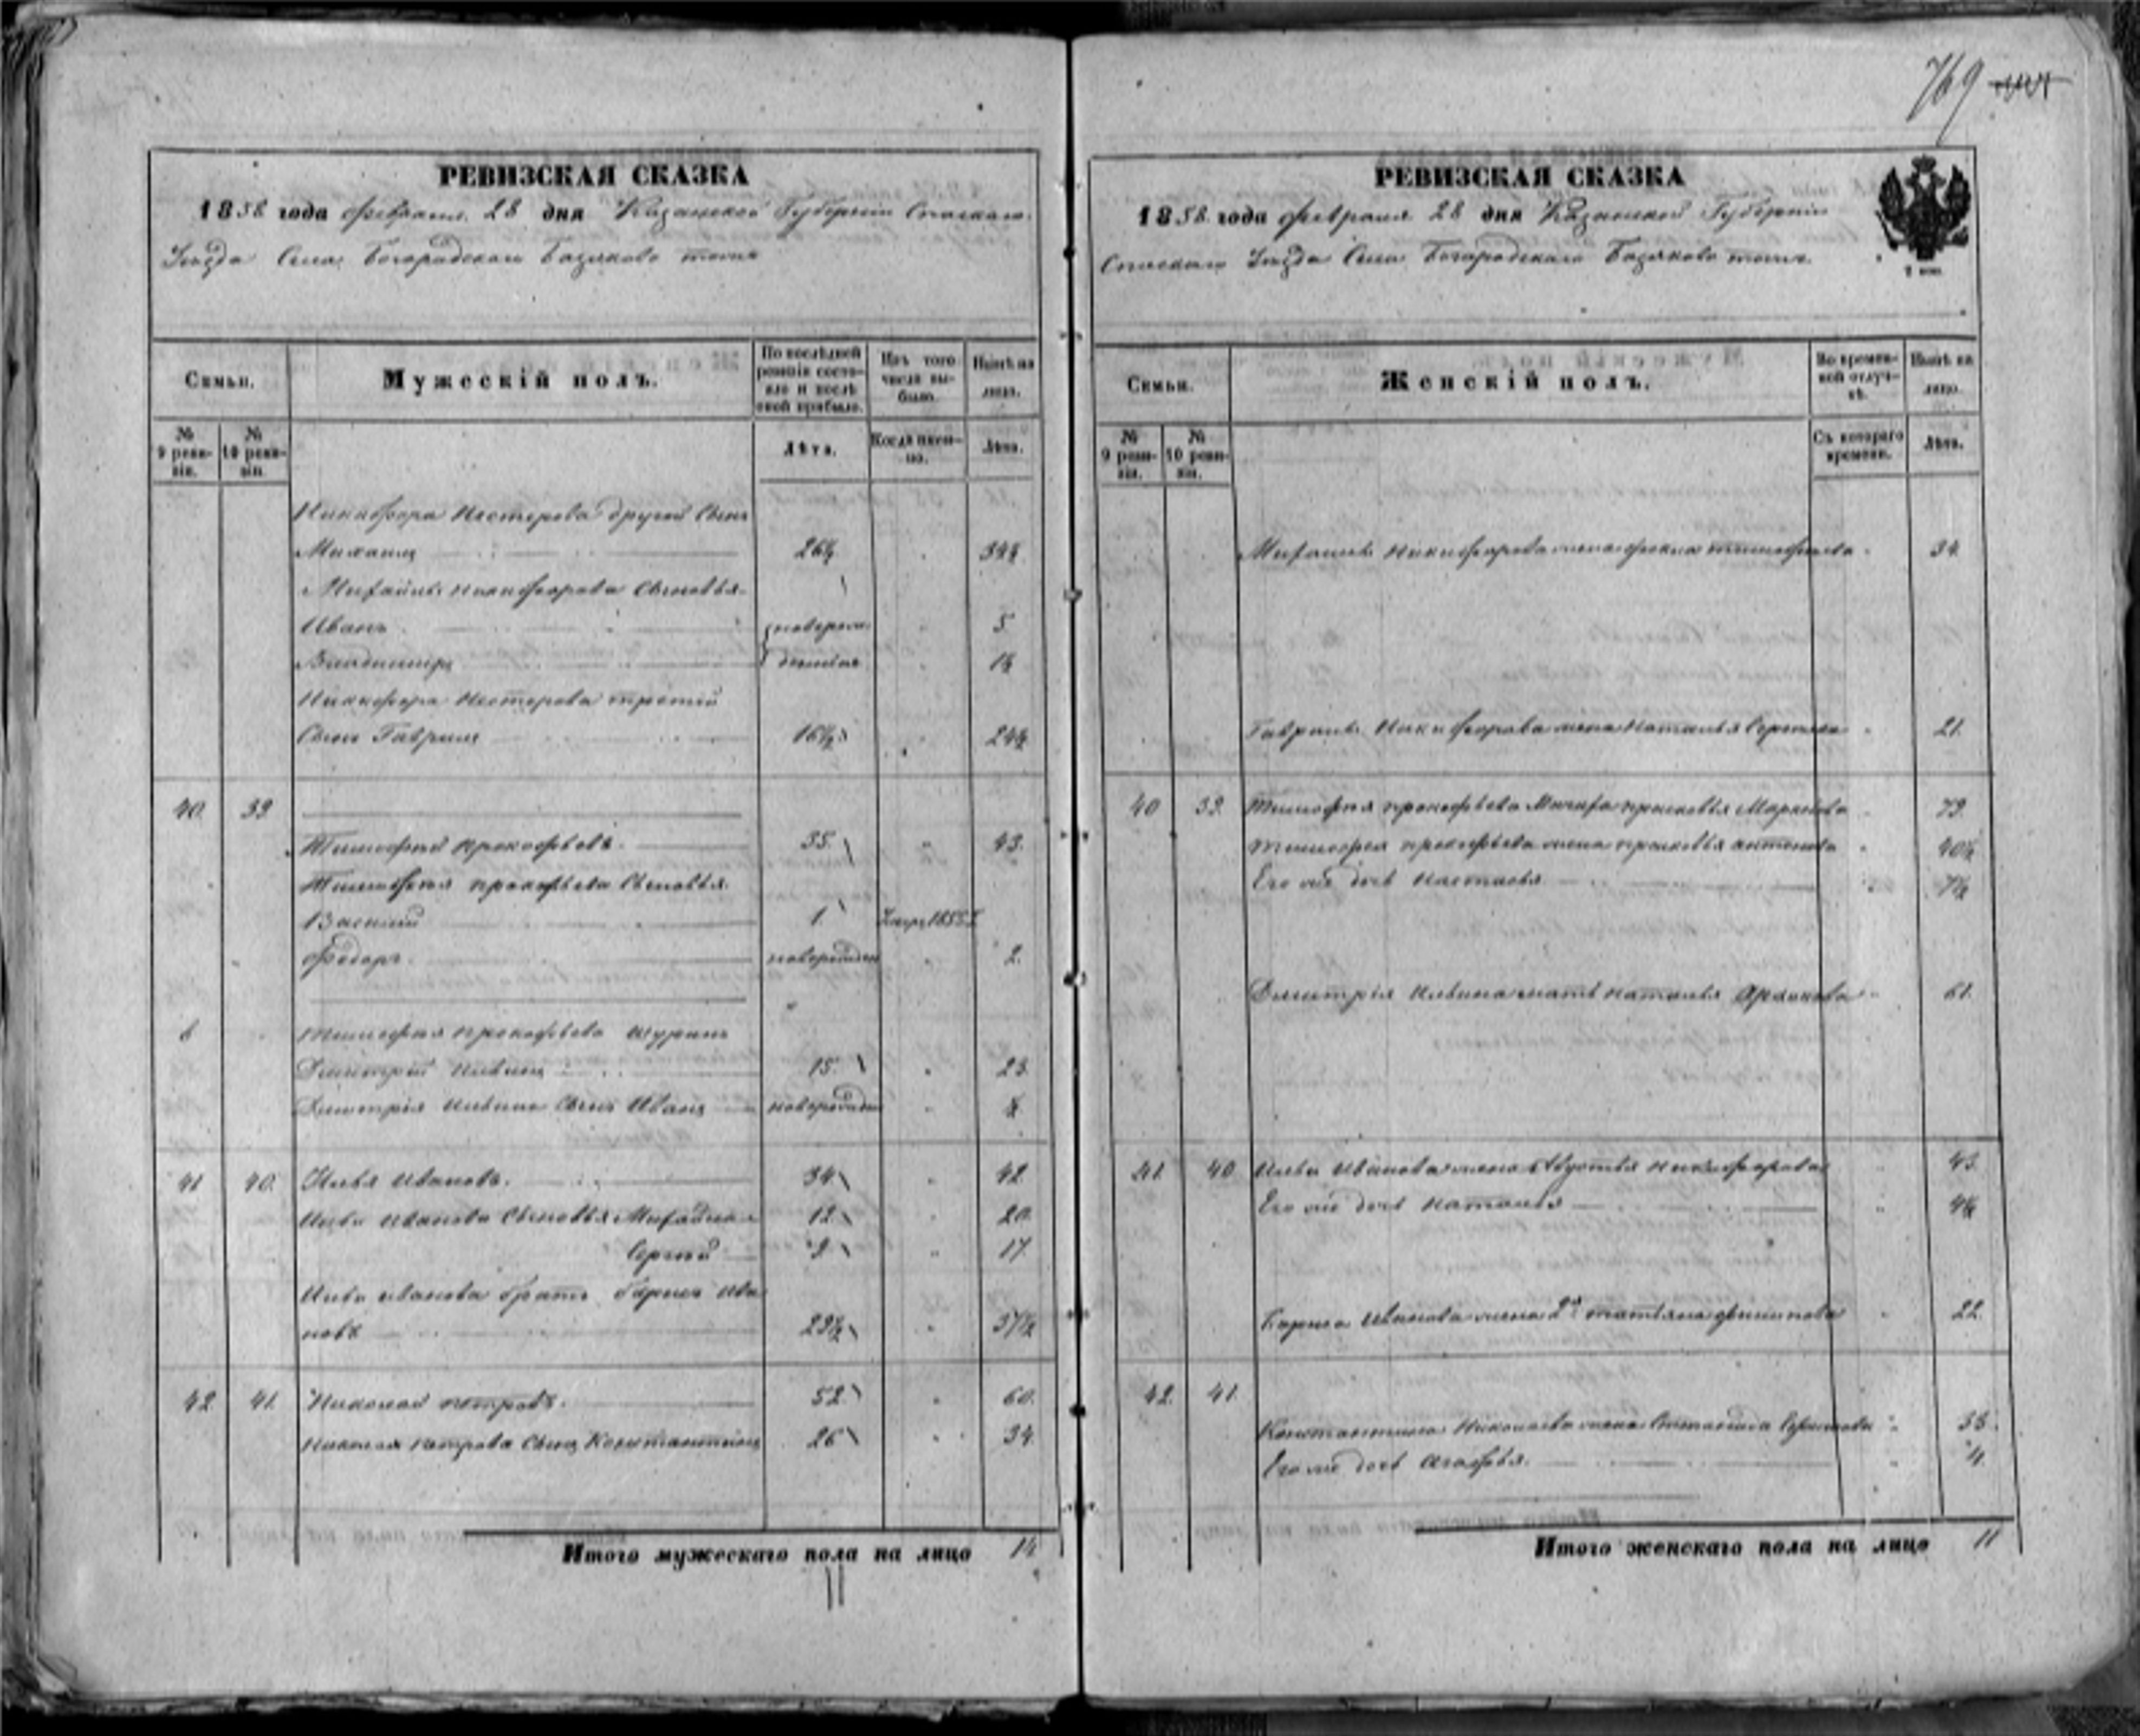 769
РЕВИЗСКАЯ СКАЗКА
1858 года февраля 28 дня Казанской Губернии Спаскаго
Уезда Села Богородскаго Базяково тожъ
Семьи.
Мужескій полъ.
По послѣдней ревизіи состояло и послѣ оной прибыло.
Изъ того числа выбыло.
Нынѣ на лицо.
№ 9 ревизіи.
№ 10 ревизіи.
Лѣта.
Когда именно.
Лѣта.
Никифора Нестерова другой Сынъ
Михаилъ 26½ 34½
Михайлы Никифорова Сыновья
Иванъ новорож 5
Владимиръ денные 1½
Никифора Нестерова третий
Сынъ Гаврила 16½ 24½
40. 39
Тимофей Прокофьевъ. 35 43.
Тимофея Прокофьева Сыновья
Василий 1. 1855
Федоръ новорожден 2.
6 Тимофея Прокофьева Шуринъ
Димитрий Ильинъ 15. 23
Димитрия Ильина Сынъ Иванъ новорожден ½
41 40. Илья Ивановъ. 34 42
Ильи Иванова Сыновья 12 20
Сергей 9 17
Ильи Иванова братъ Ива
новъ 29½ 37½
42 41. Николай Петровъ. 52 60.
Николая Петрова Сынъ Константинъ 26 34.
Итого мужескаго пола на лицо 14
РЕВИЗСКАЯ СКАЗКА
1858 года февраля 28 дня Казанской Губернии
Спаскаго Уезда Села Богородскаго Базяково тожъ
Семьи.
Женскій полъ.
Во временной отлучкѣ.
Нынѣ на лицо.
№ 9 ревизіи.
№ 10 ревизіи.
Съ котораго времени.
Лѣта.
Михайлы Никифорова жена Тимофеева 34.
Гаврилы Никифорова жена Наталья Сергеева 21.
40 39. Тимофея Прокофьева Мачиха Прасковья Маркова 79.
Тимофея Прокофьева жена Прасковья Антонова 40½
Его же дочь Настасья 7½
Димитрия Ильина мать Наталья 61.
41. 40 Ильи Иванова жена Никифорова 43.
Его же дочь Наталья 4½
Иванова жена 2я Татьяна Филипова 22.
42. 41.
Константина Николаева жена 33.
Его же дочь Агафья. 4
Итого женскаго пола на лицо 11